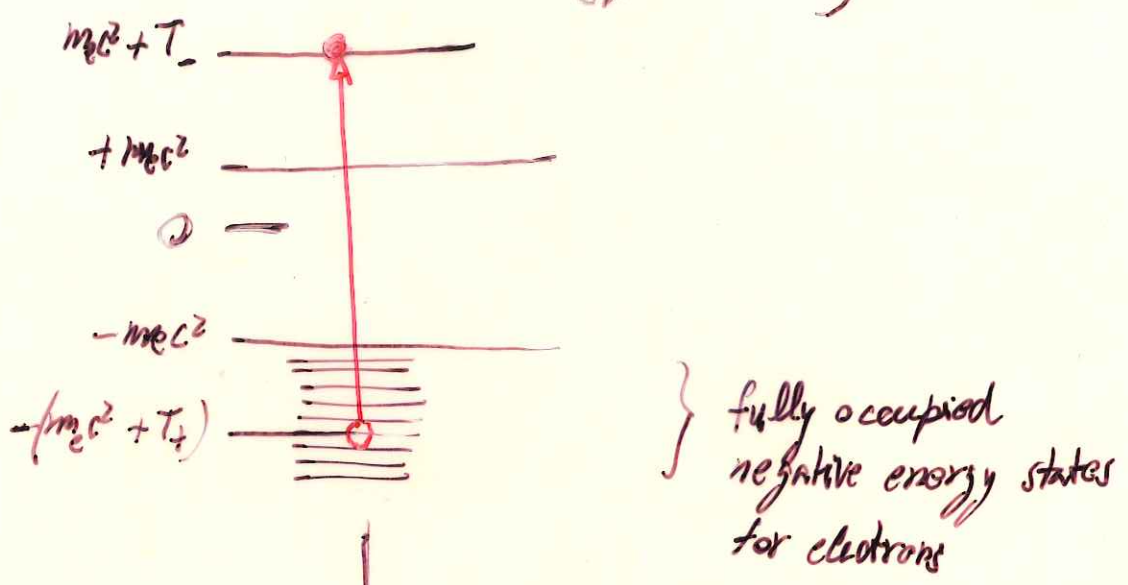 mₑc² + T₋
+ mₑc²
0
- mₑc²
-(mₑc² + T₊)
} fully occupied
negative energy states
for electrons